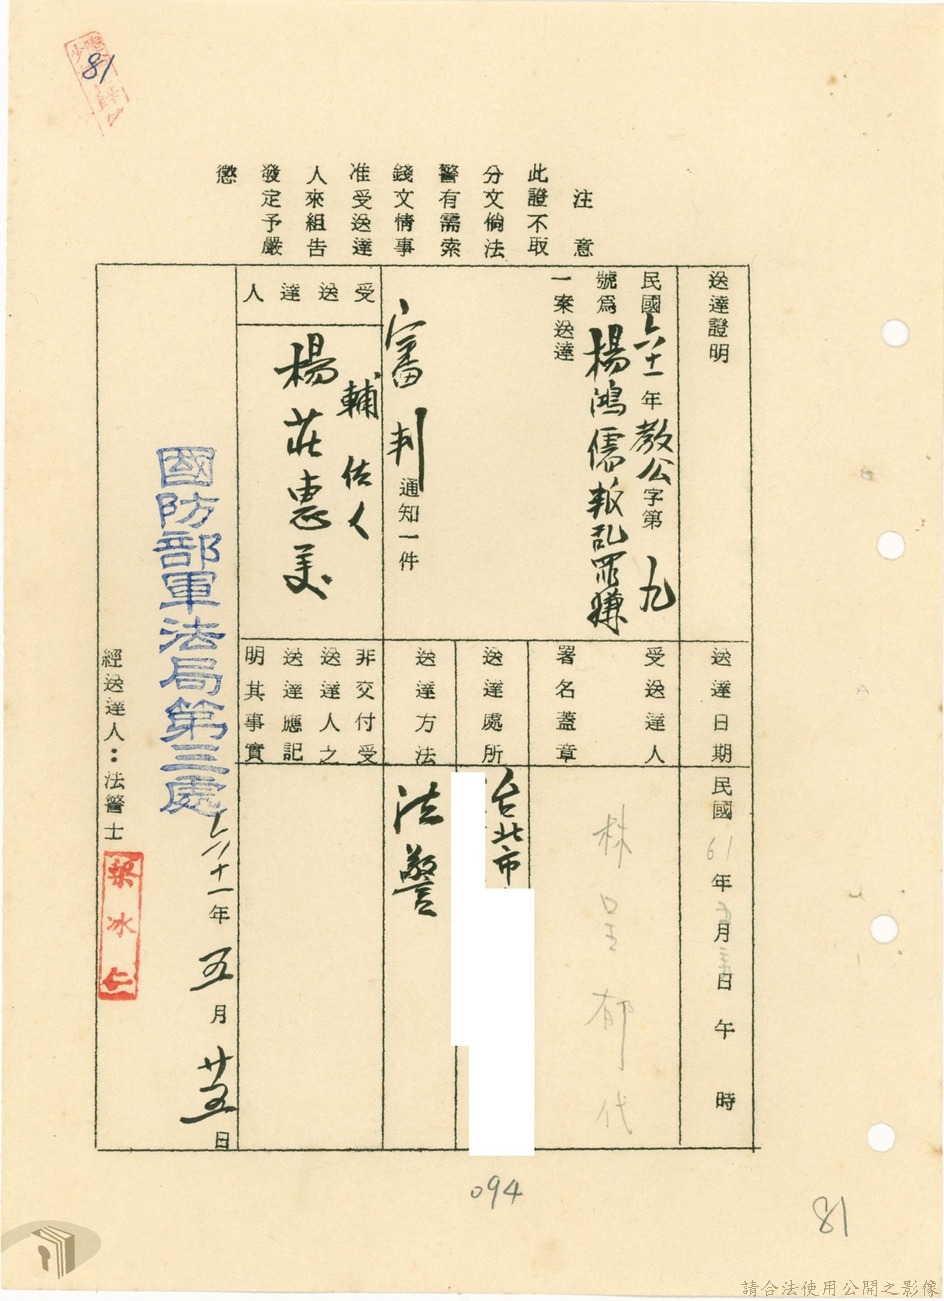 81
注意
此證不取
分文倘法
警有需索
錢文情事
准受送達
人來組告
發定予嚴
懲
送達證明
民國六十一年教公字第九
號為楊鴻儒叛乱罪嫌
一案送達
審判通知一件
受送達人
輔佐人
楊莊惠美
送達日期
民國61年五月 日午時
受送達人
署名蓋章
林呈郁代
送達處所
台北市
送達方法
法警
非交付受
送達人之
送達應記
明其事實
國防部軍法局第三處
六十一年五月廿五日
經送達人：法警士
梁冰仁
094
81
請合法使用公開之影像